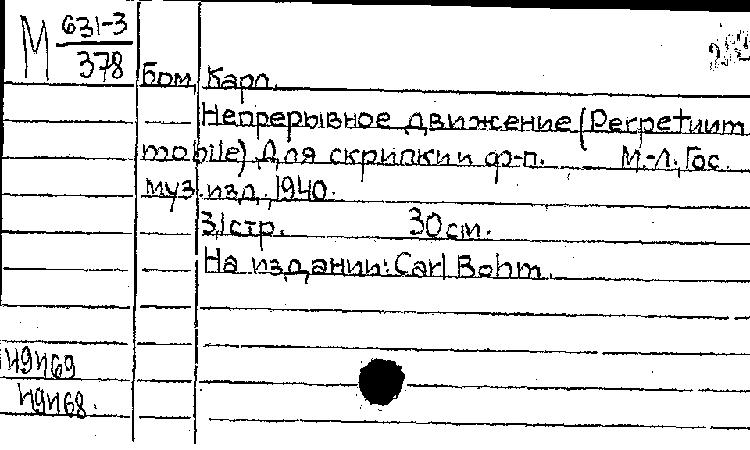 М 631-3
378
Бом, Карл.
Непрерывное движение (Perpetuum
mobile). Для скрипки и ф-п. М-Л., Гос.
муз. изд., 1940.
31 стр. 30 см.
На издании: Carl Bohm.